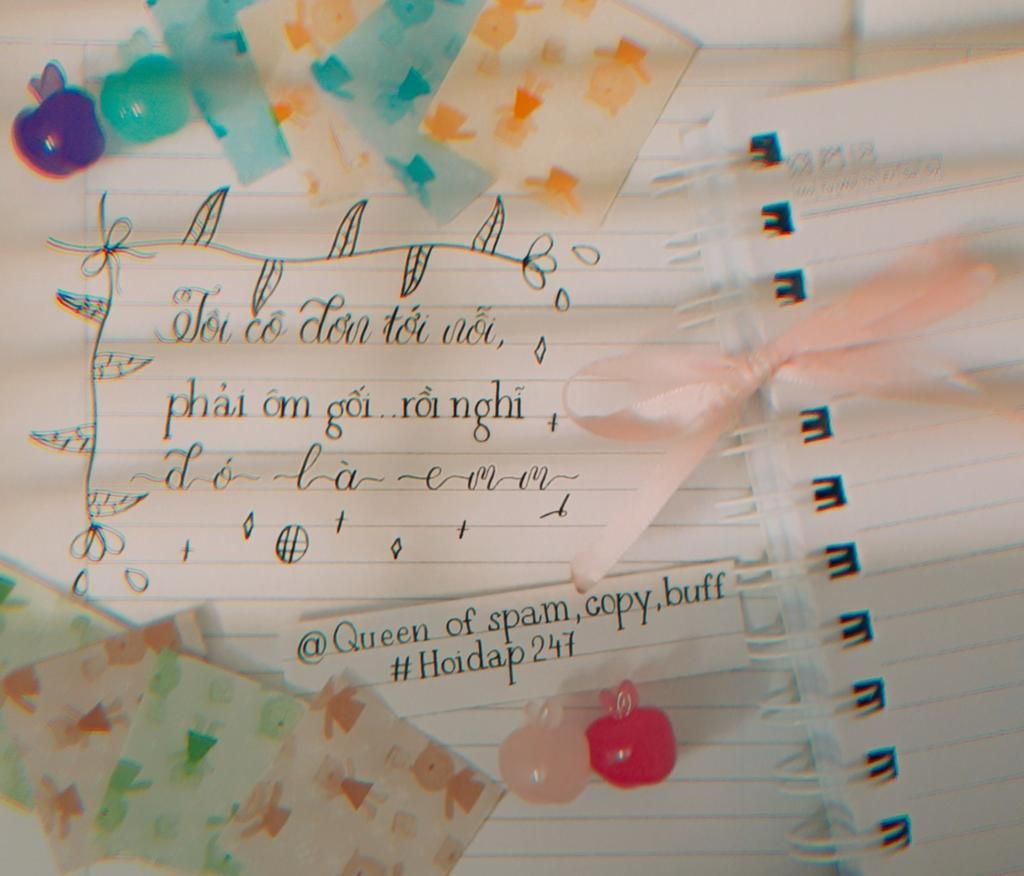 Tôi cô đơn tới nỗi,
phải ôm gối..rồi nghĩ
~đó~là~emm~
@Queen of spam,copy,buff
#Hoidap247